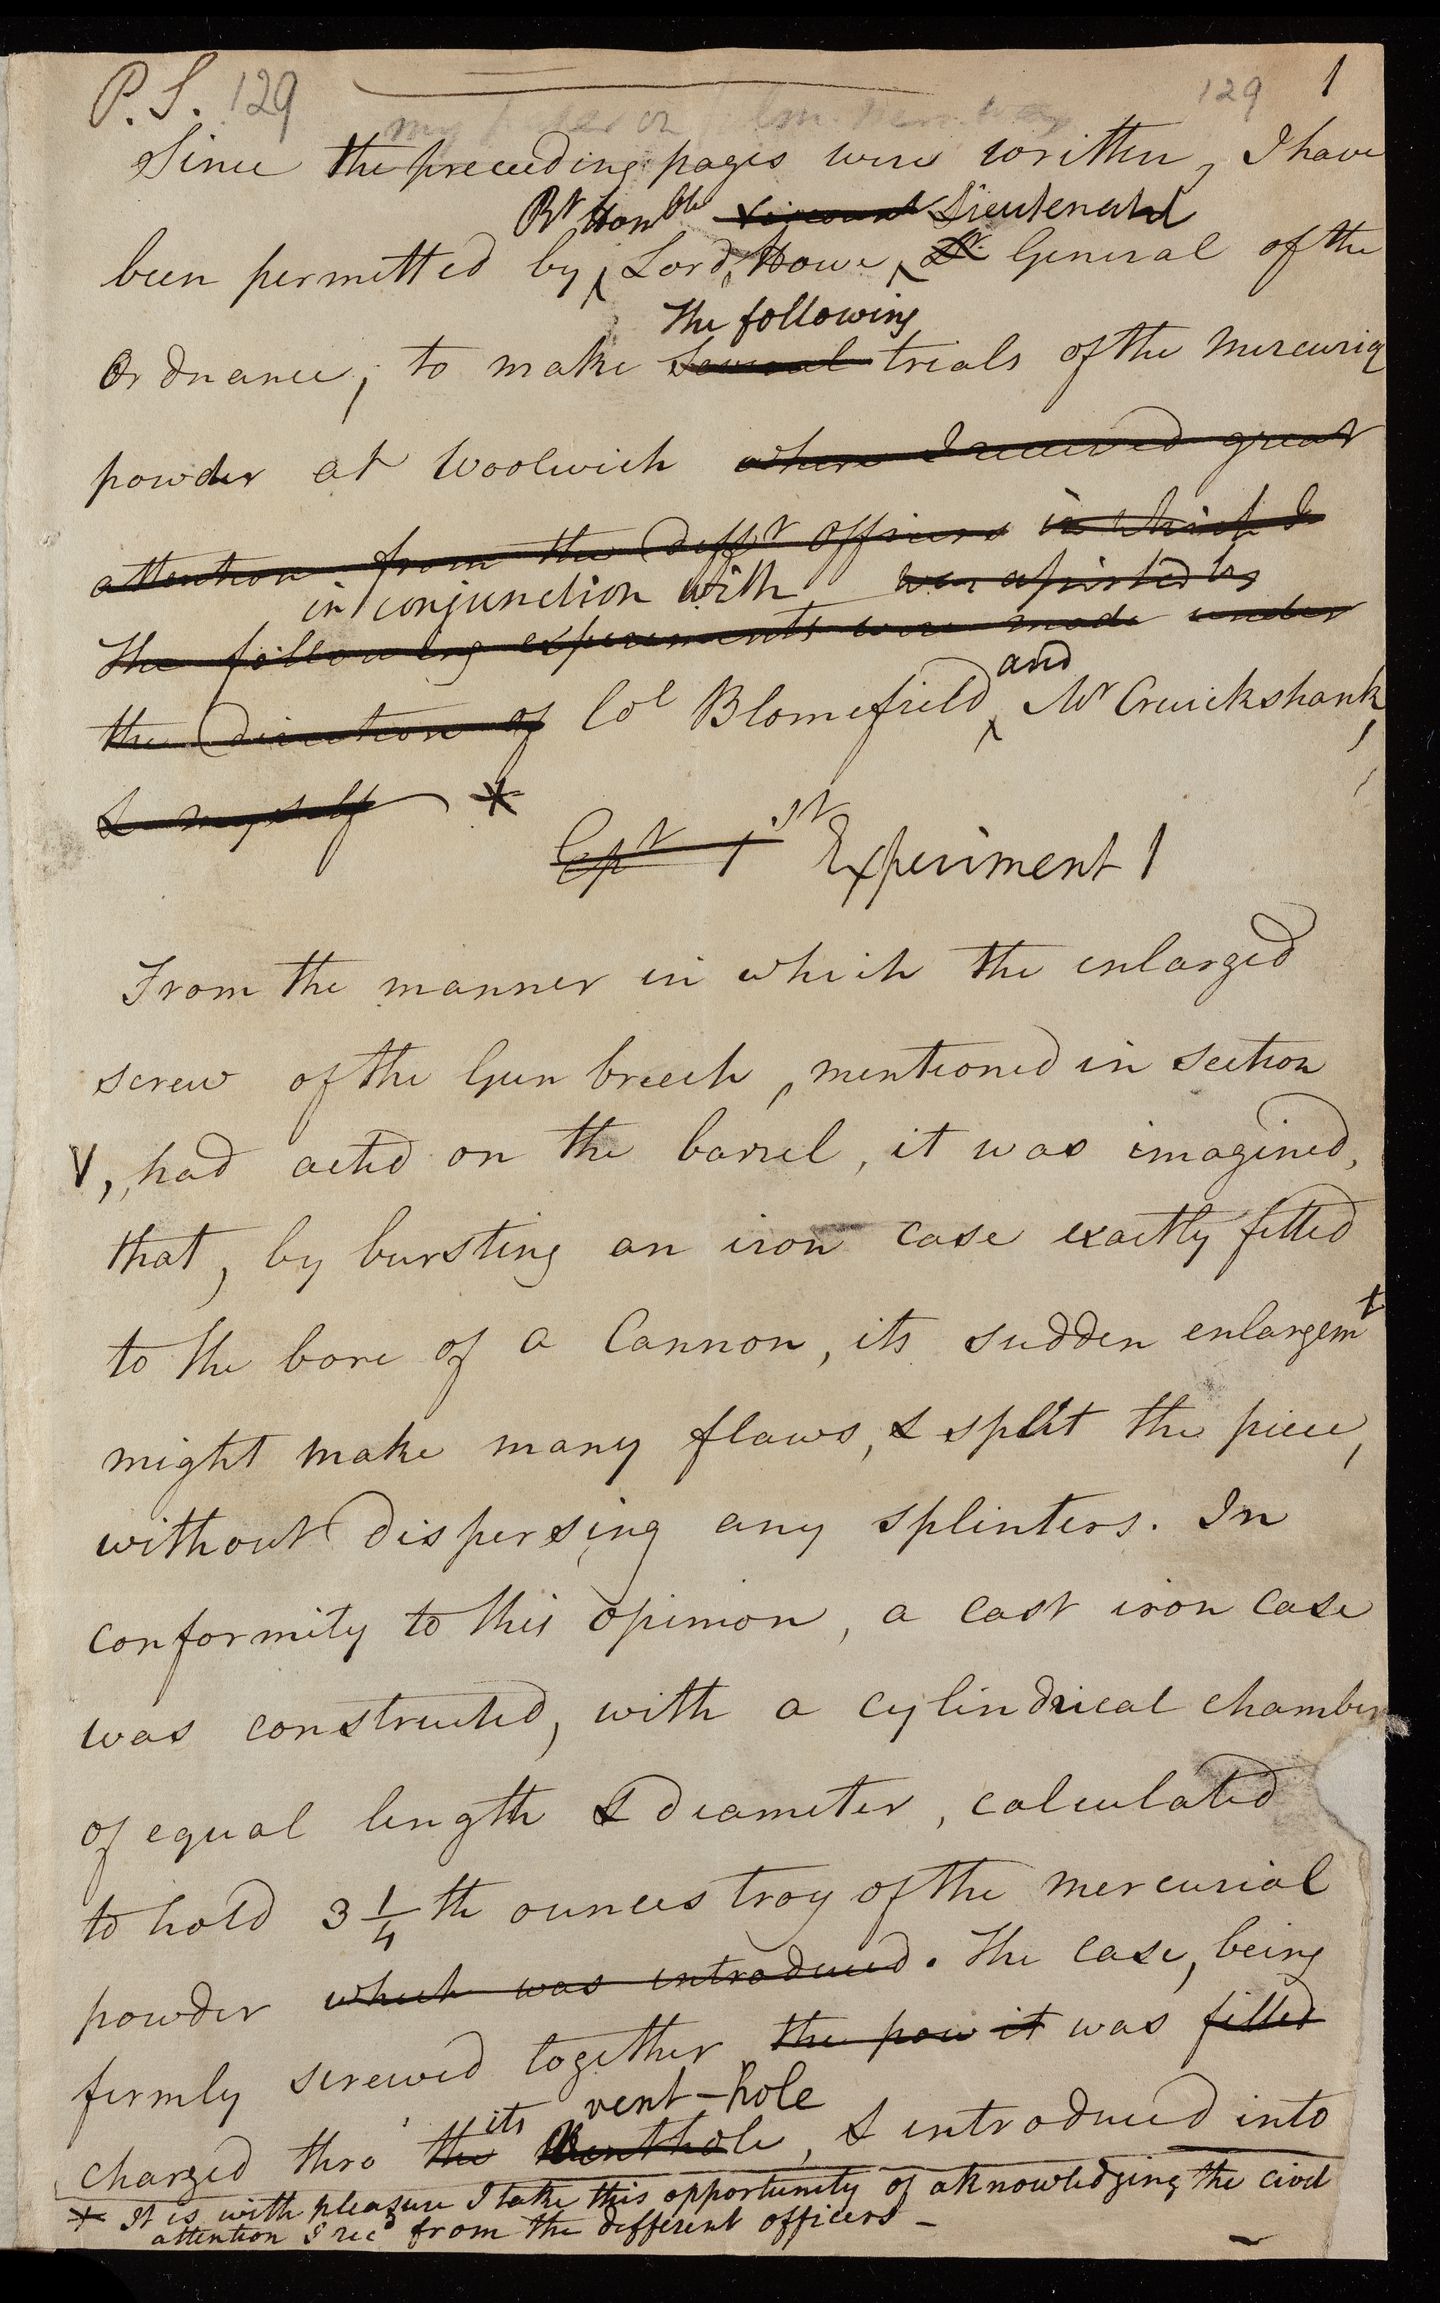 P.S. 129 129 1
Since the preceeding pages were written, I have
Rt Honble Viscount Lieutenant
been permitted by Lord Howe, Lt General of the
the following
Ordnance, to make several trials of the mercurial
powder at Woolwich where I received great
attention from the diffrt officers in which I
in conjunction with was assisted by
The following experiments were made under
and
the direction of Col Blomefield, Mr Cruickshank,
& myself *
Expt 1st Experiment 1
From the manner in which the enlarged
screw of the Gun breech, mentioned in section
V, had acted on the barrel, it was imagined,
that, by bursting an iron case exactly fitted
to the bore of a Cannon, its sudden enlargemt
might make many flaws, & split the piece,
without dispersing any splinters. In
conformity to this opinion, a cast iron case
was constructed, with a cylindrical chamber
of equal length & diameter, calculated
to hold 3 1/4 th ounces troy of the mercurial
powder which was introduced. The case, being
firmly screwed together the pow it was filled
its vent-hole
charged thro' the venthole, & introduced into
* It is with pleasure I take this opportunity of aknowledging the civil
attention I recd from the different officers –